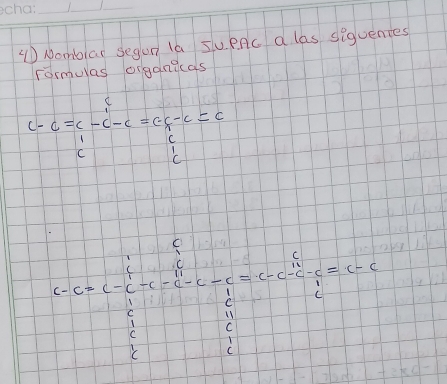 echa:
4) Nombrar según la IUPAC a las siguientes
Formulas organicas
C
C - C = C - C - C = C C - C = C
C C
C
C
C C C
C - C = C - C - C - C - C - C = C - C - C - C = C - C
C C C
C C
C C